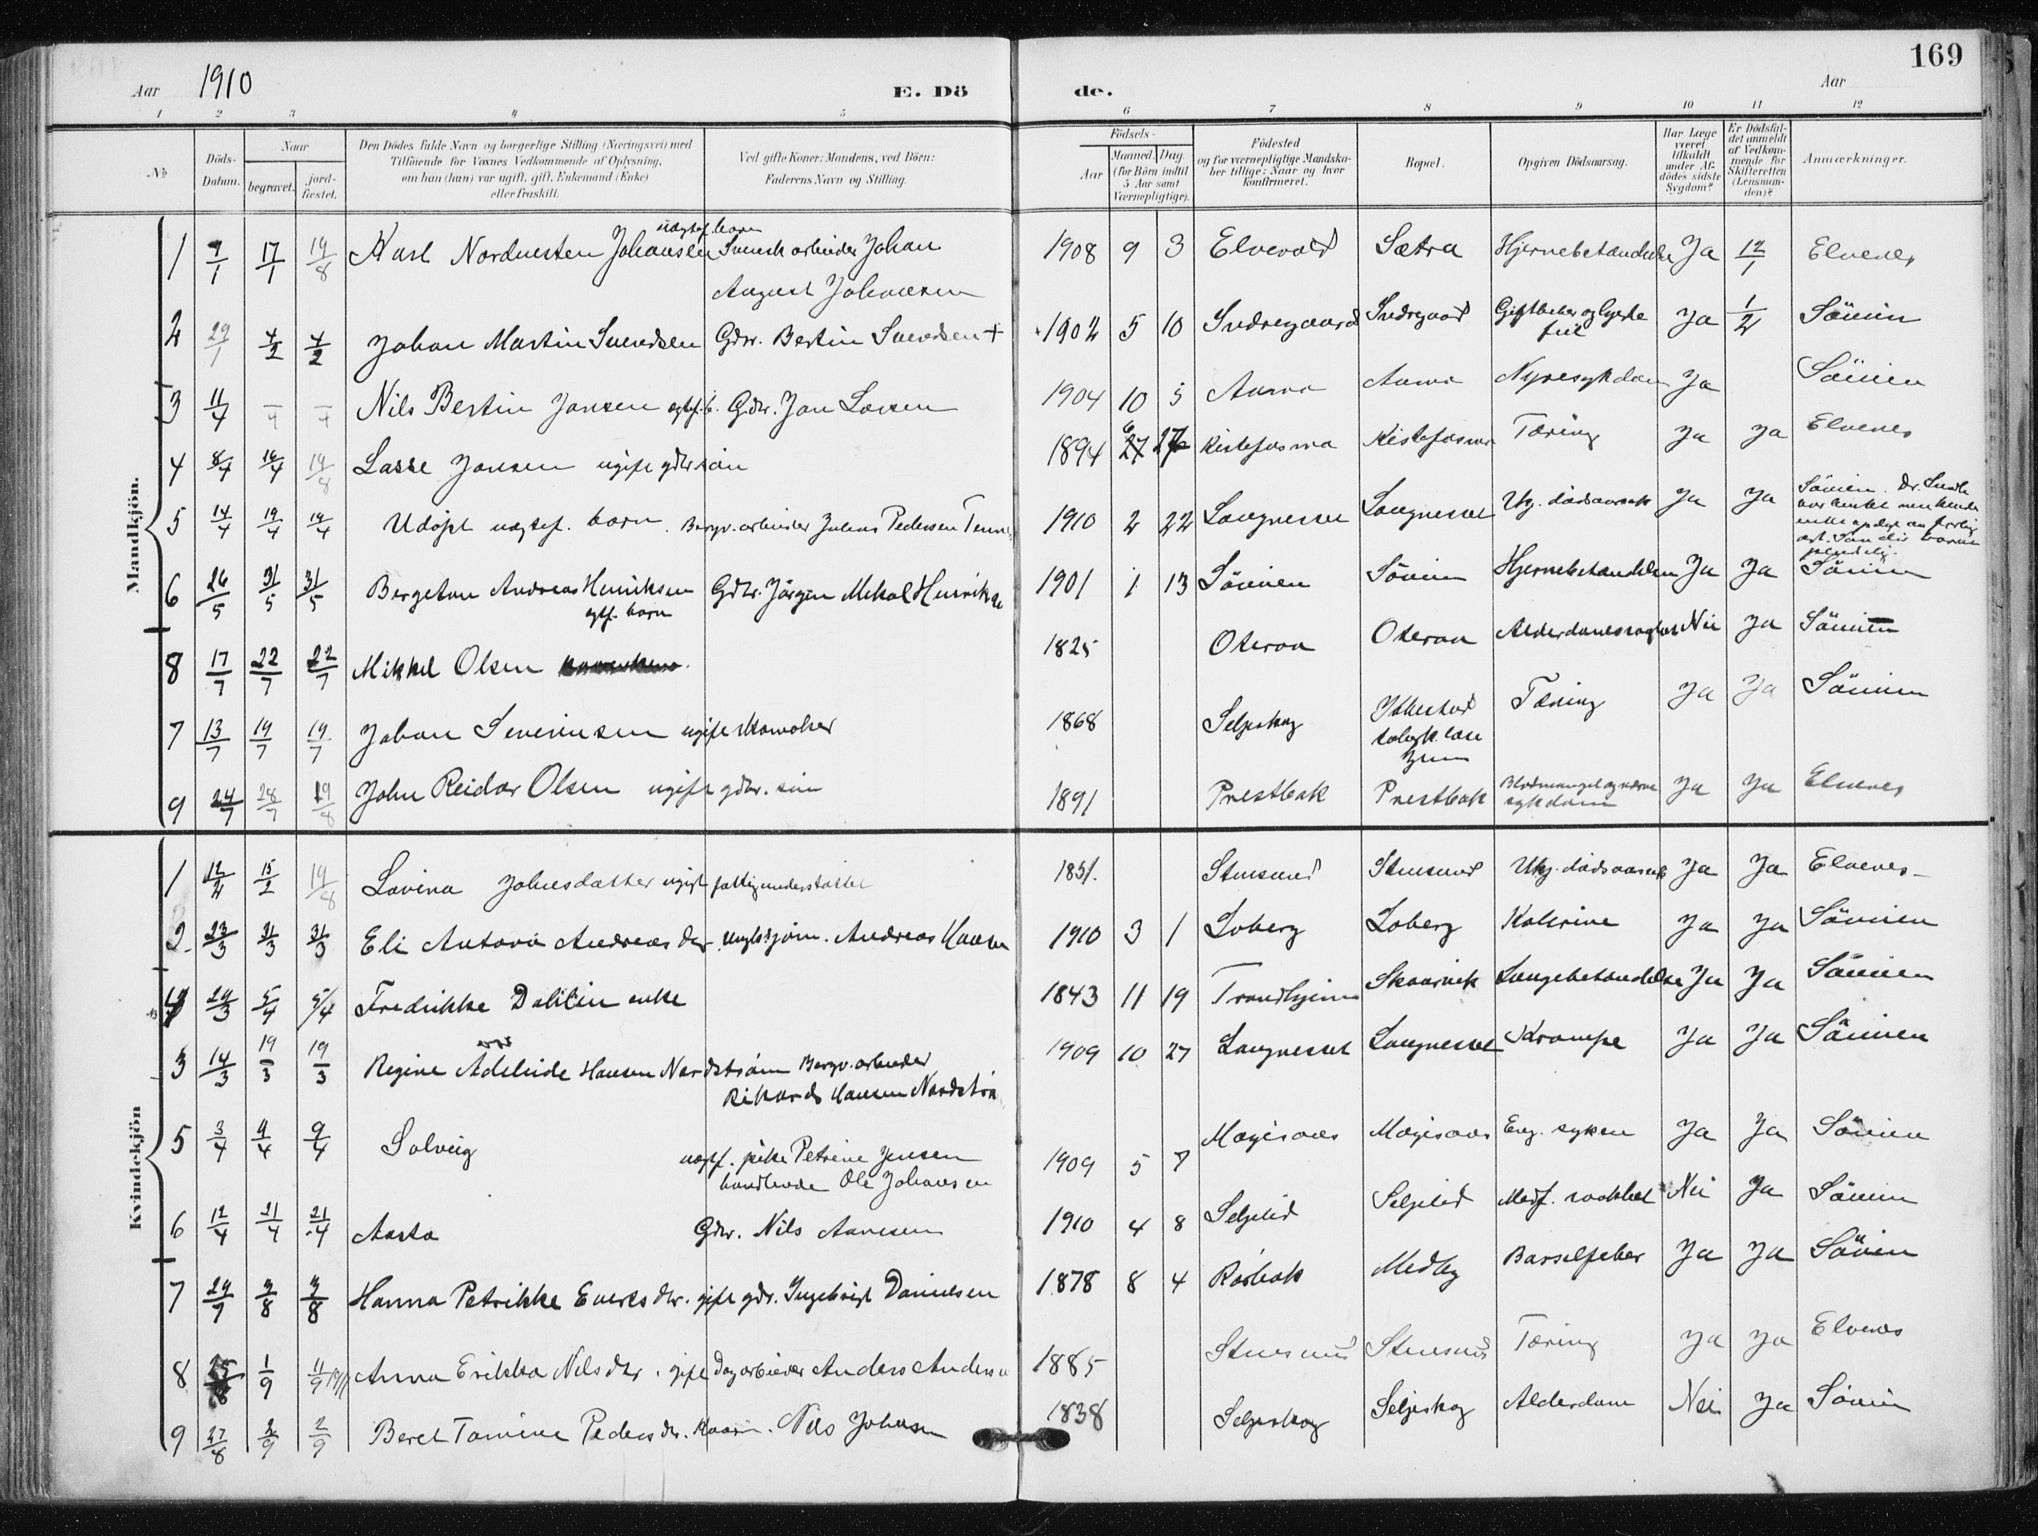 169
Aar 1910 E. Dö de. Aar
1 2 3 4 5 6 7 8 9 10 11 12
No
Döds-Datum.
Naar
begravet.
jord-fæstet.
Den Dödes fulde Navn og borgerlige Stilling (Næringsvei) med
Tilföiende for Voxnes Vedkommende af Oplysning,
om han (hun) var ugift, gift, Enkemand (Enke)
eller fraskilt.
Ved gifte Koner: Mandens, ved Börn:
Faderens Navn og Stilling.
Födsels-
Aar
Maaned. Dag.
(for Börn indtil
5 Aar samt
Værnepligtige).
Födested
og for værnepligtige Mandska-
ber tillige: Naar og hvor
konfirmeret.
Bopæl.
Opgiven Dödsaarsag.
Har Læge
været
tilkaldt
under Af-
dödes sidste
Sygdom?
Er Dödsfal-
det anmeldt
af Vedkom-
mende for
Skifteretten
(Lensman-
den)?
Anmærkninger.
Mandkjön.
1 7/1 17/1 19/8 Karl Nordvesten Johansen uægtef. barn Svensk arbeider Johan 1908 9 3 Elvevold Sætra Hjernebetændelse Ja 12/1 Elvenes
August Johansen
2 29/1 4/2 4/2 Johan Martin Sivertsen Gdbr. Bertin Sivertsen + 1902 5 10 Indregaard Indregaard Giftfeber og Ja 1/2 Sömin
3 11/4 Nils Bertin Jansen ægtef. b. Gdbr. Jan Larsen 1904 10 5 Aanva Aanva Nyresykdom Ja Sömien
4 8/4 16/4 19/8 Lasse Jansen ugift gdbr. sön 1894 6 27 Kistefosmo Kistefosmo Tæring Ja Ja Elvenes
5 14/4 19/4 19/4 Udöpt uægtef. barn. Bergv. arbeider Julius Pedersen 1910 2 22 Langneset Langneset Ukj. dödsaarsak Ja Ja Sömien. Dr.
6 26/5 31/5 31/5 Bergeton Andreas Henriksen Gdbr. Jörgen Mekal Henriksen 1901 1 13 Sömien Sömin Hjernebetændelse Ja Ja Sömin
ægtf. barn
8 17/7 22/7 22/7 Mikkel Olsen 1825 Oteraa Oteraa Alderdomssvaghet Nei Ja Sömien
7 13/7 19/7 19/7 Johan Severinsen ugift skomaker 1868 Seljeskog Ibbestad Tæring Ja Ja Sömien
9 24/7 28/7 19/8 John Reidar Olsen ugift gdbr. sön 1891 Prestbak Prestbak Blodmangel og nerve Ja Ja Elvenes
sykdom
Kvindekjön
1 12/2 15/2 19/8 Lovina Johnsdatter ugift fattigunderstöttet 1831. Stensund Stensund Ukj. dödsaarsak Ja Ja Elvenes
2 23/3 31/3 31/3 Eli Antova Andreasdtr. Ungkskjöm. Andreas Hansen 1910 3 1 Loberg Loberg Kolerine Ja Ja Sömien
4 29/3 5/4 5/4 Fredrikke Dablin enke 1843 11 19 Trondhjem Skaarvik Lungebetændelse Ja Ja Sömien
3 14/3 19/3 19/3 Regine Adeleide Hansen Nordström Bergv. arbeider 1909 10 27 Langneset Langneset Krampe Ja Ja Sömien
Rikards Hansen Nordström
5 3/4 9/4 9/4 Solveig uægtf. pike Petrine Jensen 1909 5 7 Mogisaas Mogisaas Eng. syken Ja Ja Sömien
handlende Ole Johansen
6 12/4 21/4 21/4 Aasta Gdbr. Nils Aanesen 1910 4 8 Seljelid Seljelid Medf. svakhet Nei Ja Sömin
7 29/7 3/8 3/8 Hanna Petrikke Evertsdtr. gift gdbr. Ingebrigt Danielsen 1878 8 4 Rörbak Medby Barselfeber Ja Ja Söwien
8 1/9 11/9 Anna Erikka Nilsdtr. gift Dagarbeider Anders Andersen 1885 Stensund Stensund Tæring Ja Ja Elvenes
9 27/8 2/9 2/9 Beret Tomine Pedersdtr. Kaarm. Nils Johnsen 1838 Seljeskog Seljeskog Alderdom Nei Ja Sömin